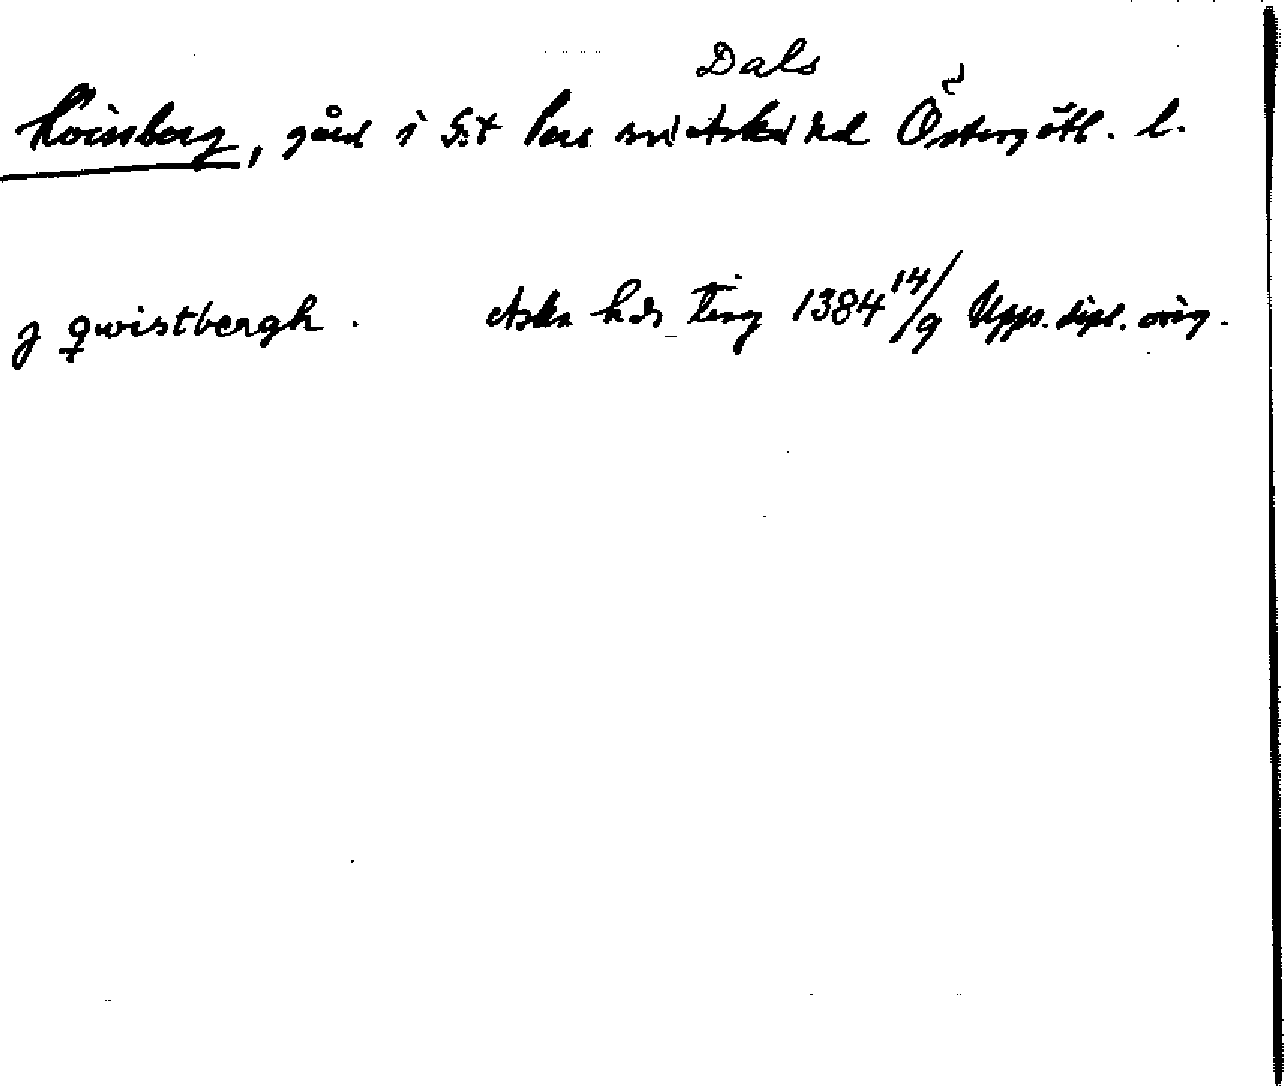 Dals
Kvissberg, gård i S:t Pers sn i Aska hd Östergötl. l.
j qwistbergh. Aska hds ting 1384 14/9 Upps. dipl. orig.